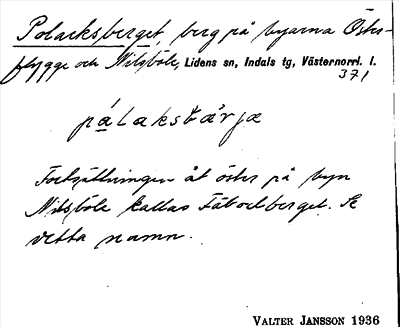 Polacksberget, berg på byarna Öster-
flygge och Nilsböle, Lidens sn, Indals tg, Västernorrl. l.
371
pálaksbärjæ
Fortsättningen åt öster på byn
Nilsböle kallas Fäbodberget. Se
detta namn.
VALTER JANSSON 1936